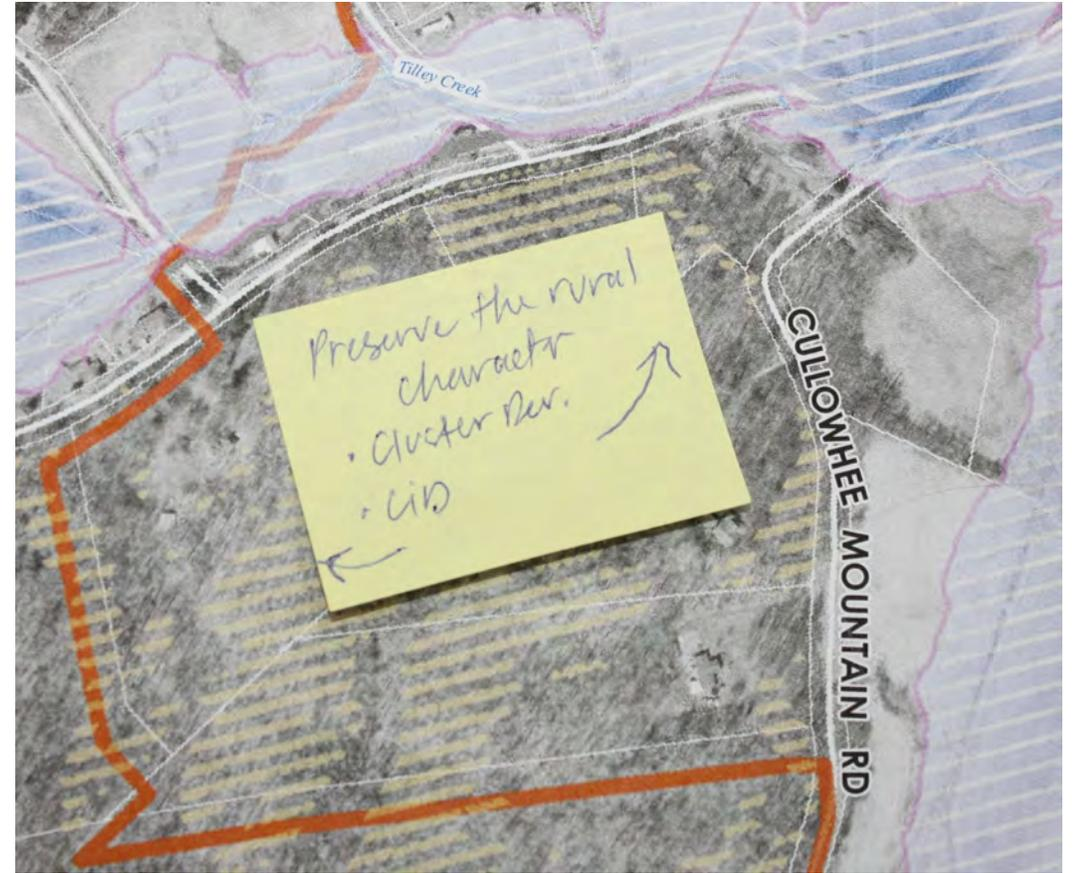 Tilley Creek
Preserve the rural
charactr
• Cluster Dev.
• LiD
CULLOWHEE MOUNTAIN RD